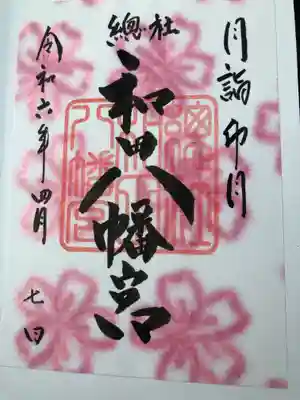 月詣卯月
總社
和田八幡宮
令和六年四月
七日